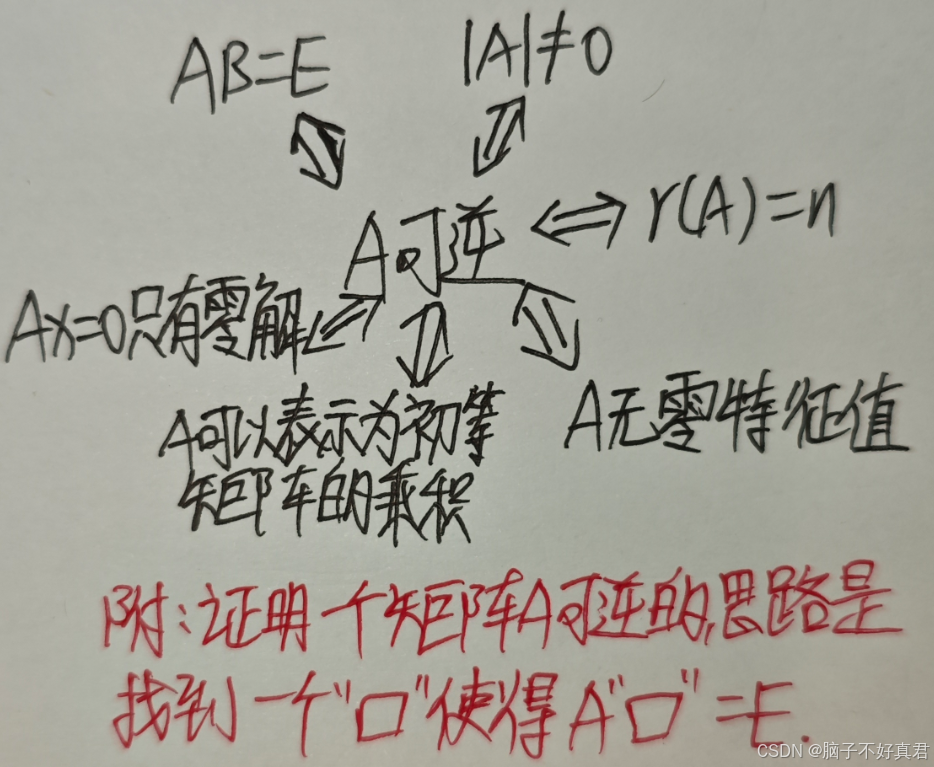 AB=E
|A|≠0
A可逆
r(A)=n
Ax=0只有零解
A可以表示为初等
矩阵的乘积
A无零特征值
附:证明一个矩阵A可逆的思路是
找到一个“口”使得A“口”=E.
CSDN @脑子不好真君